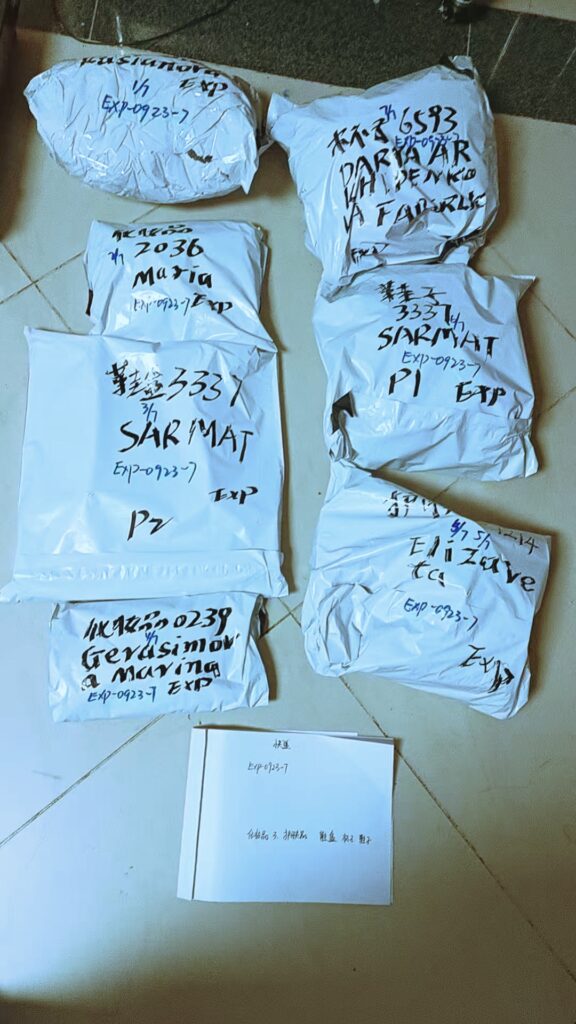 EXP
1/7
EXP-0923-7
7/7 6593
杯子
EXP-0923-7
DARYA AR
EXP
化妆品
2036
2/7
Maria
EXP-0923-7 EXP
鞋子
3337
4/7
SARMAT
EXP-0923-7
P1 EXP
鞋盒 3337
3/7
SARMAT
EXP-0923-7
EXP
P2
5/7
Elizave
ta
EXP-0923-7
EXP
化妆品 0239
Gerasimov
a Marina
EXP-0923-7 EXP
EXP-0923-7
化妆品 3. 护肤品 鞋盒 杯子 鞋子